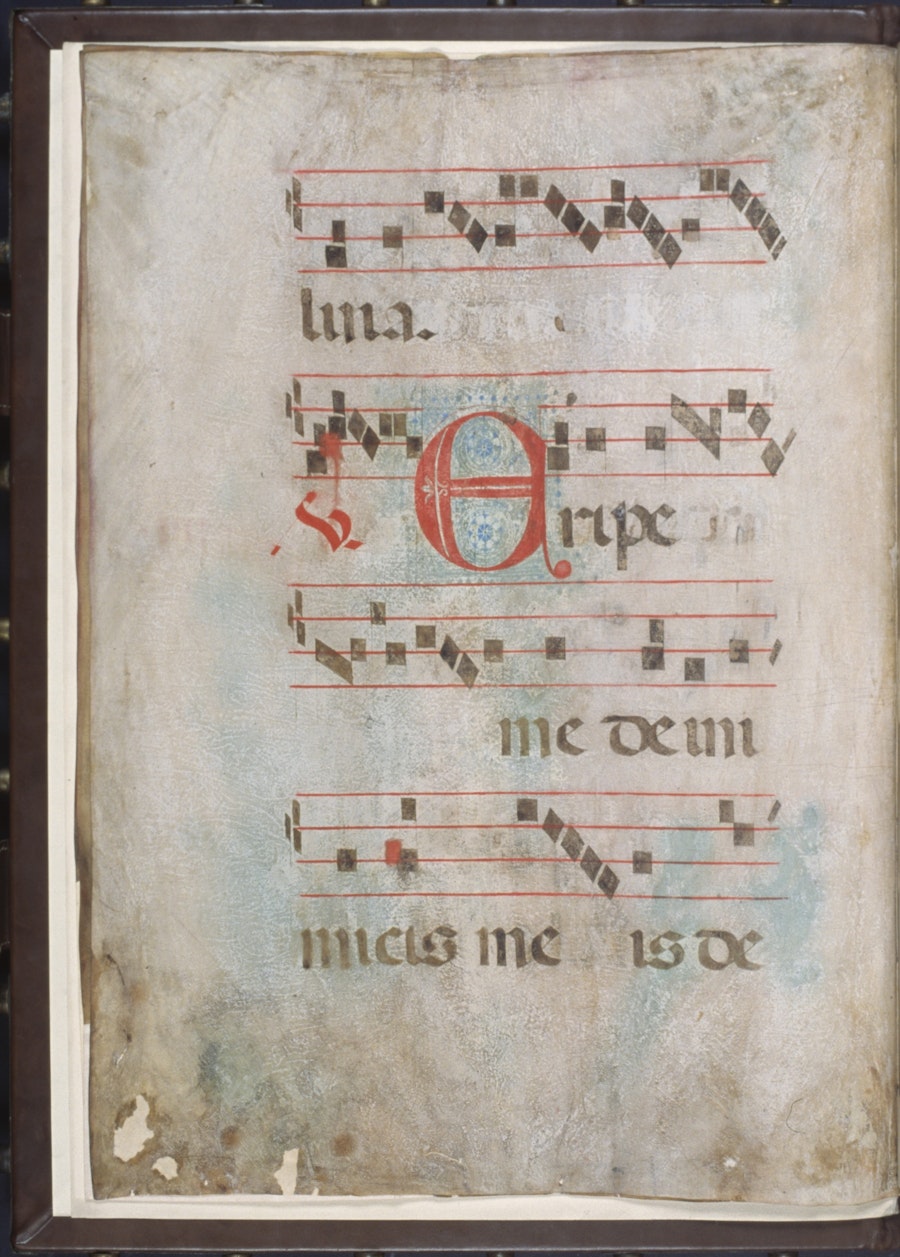 luia.
℣. Eripe
me de ini
micis me is de